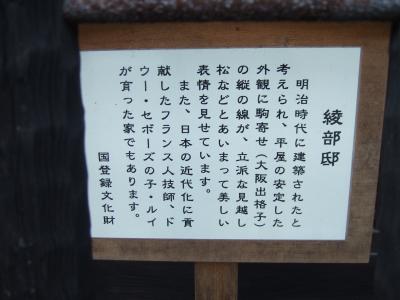 綾部邸
明治時代に建築されたと
考えられ、平屋の安定した
外観に駒寄せ(大阪出格子)
の縦の線が、立派な見越し
松などとあいまって美しい
表情を見せています。
また、日本の近代化に貢
献したフランス人技師、ド
ウー・セボーズの子・ルイ
が育った家でもあります。
国登録文化財